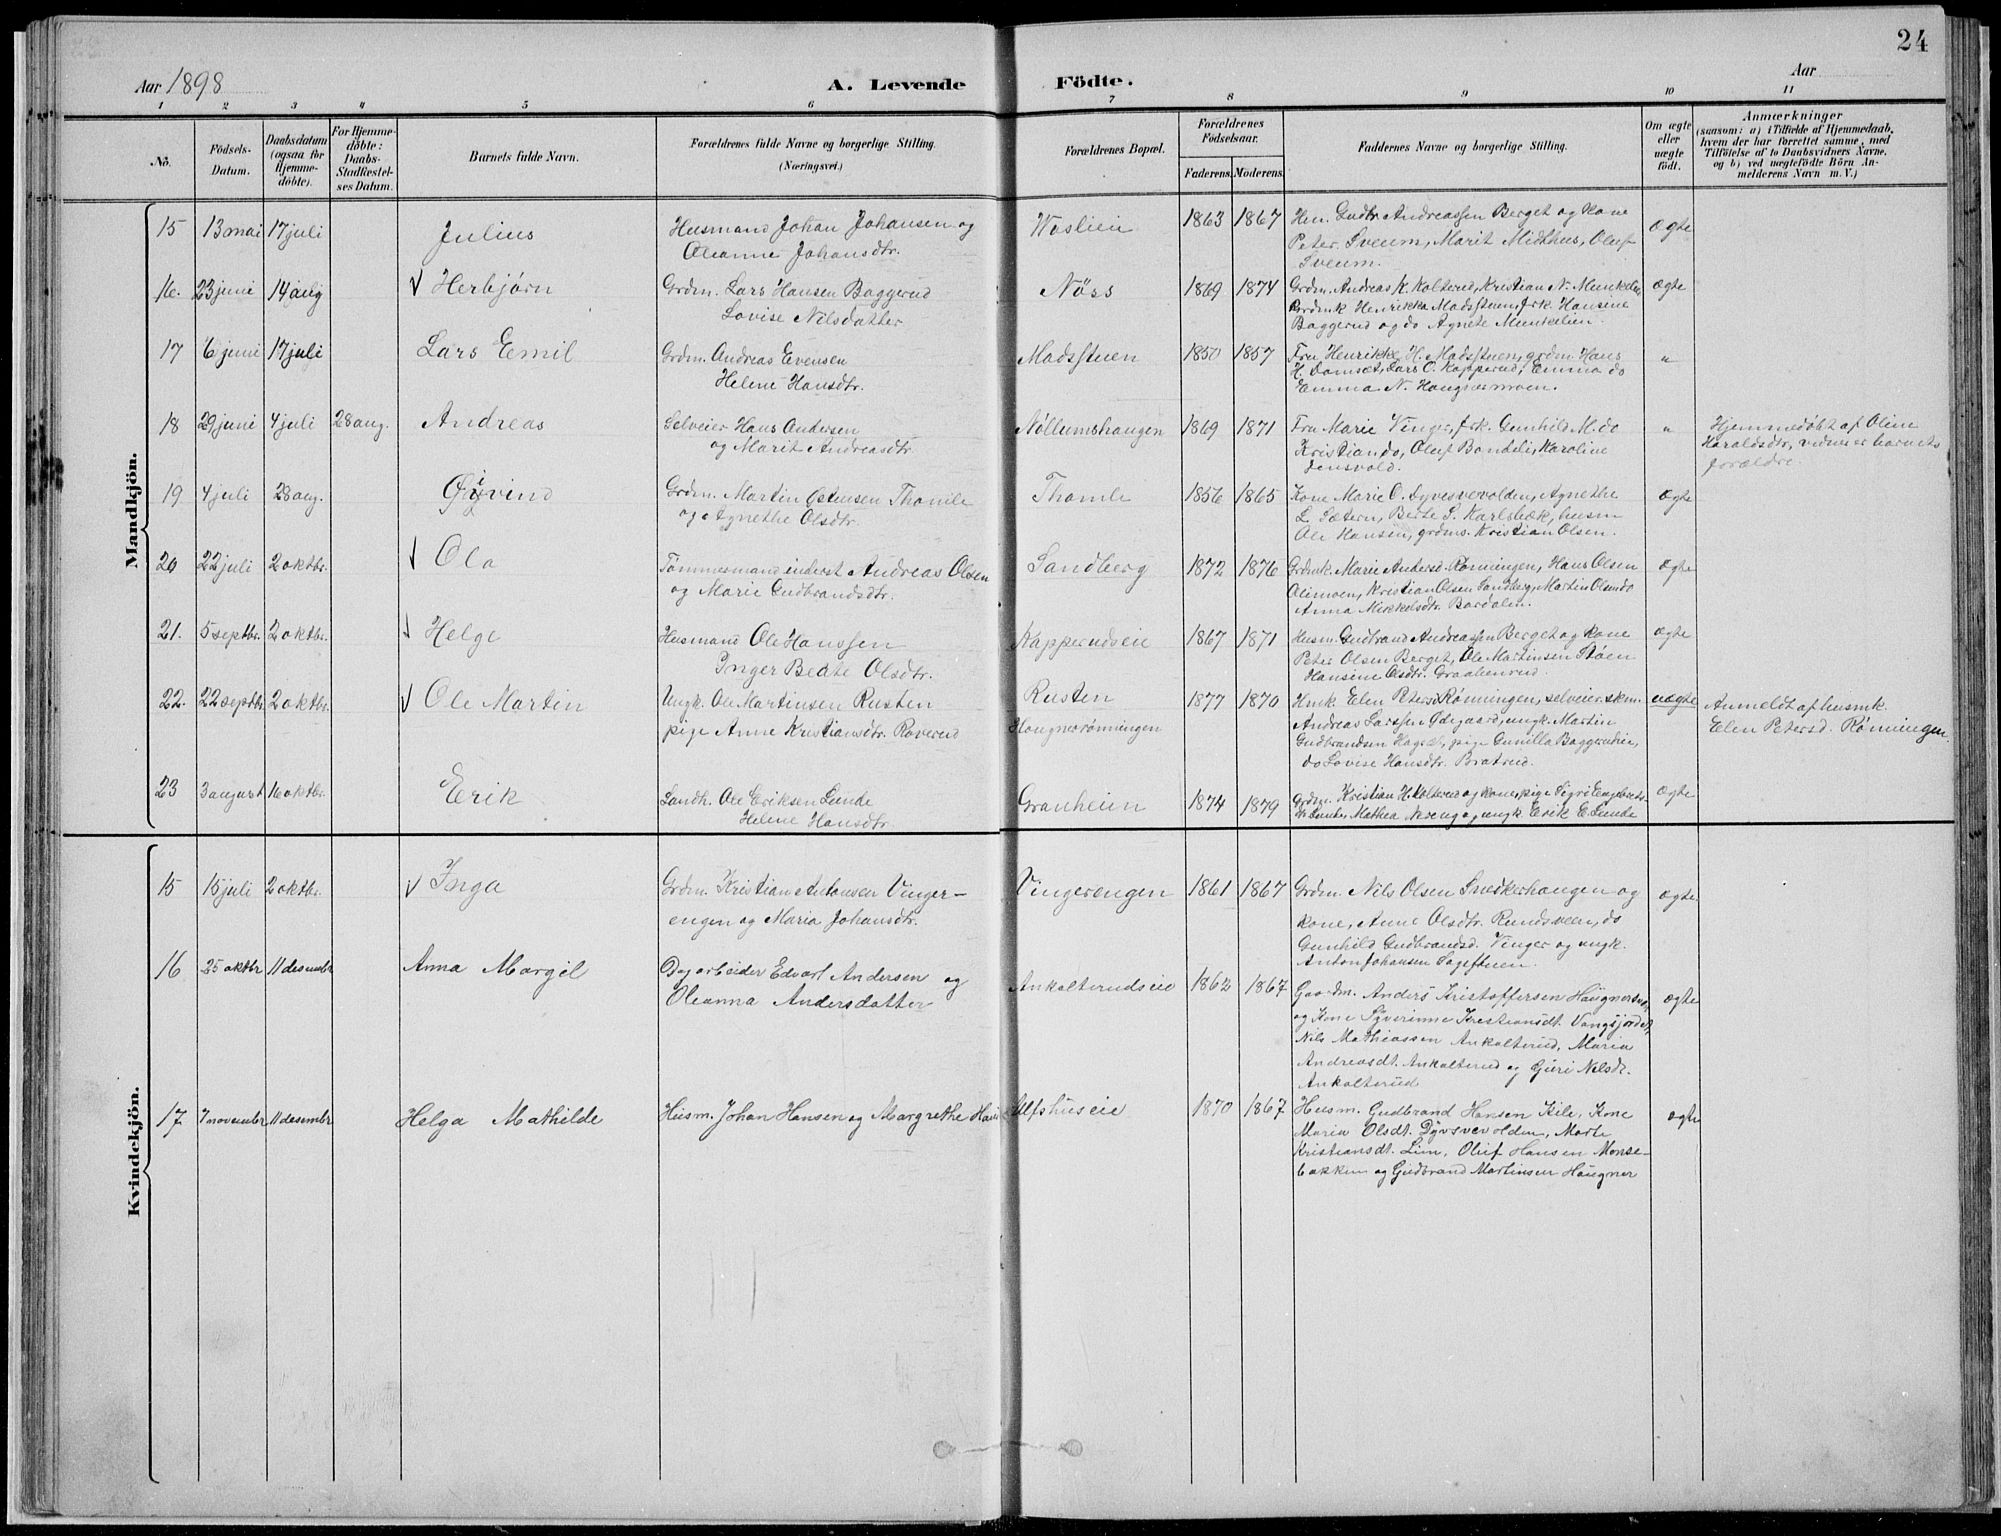 24
Aar 1898
A. Levende
Födte.
Aar
1 2 3 4 5 6 7 8 9 10 11
No.
Födsels-
Datum.
Daabsdatum
(ogsaa för
Hjemme-
döbte).
For Hjemme-
döbte:
Daabs-
Stadfæstel-
ses Datum.
Barnets fulde Navn.
Forældrenes fulde Navne og borgerlige Stilling.
(Næringsvei.)
Forældrenes Bopæl.
Forældrenes
Födselsaar.
Faderens. Moderens.
Faddernes Navne og borgerlige Stilling.
Om ægte
eller
uægte
födt.
Anmærkninger
(saasom: a) i Tilfælde af Hjemmedaab,
hvem der har forrettet samme, med
Tilföielse af to Daabsvidners Navne,
og b) ved uægtefödte Börn An-
melderens Navn m. V.)
Mandkjön.
15 13 mai 17 juli Julius Husmand Johan Johansen og
Oleanne Johansdtr.
1863 1867 Hen. Gudbr Andreassen Berget og kone
Peter Sveum, Marit Midthus, Oluf
Sveum.
ægte
16. 23 juni 14 aug √ Herbjørn Grdm. Lars Hansen Baggerud
Lovise Nilsdatter
Nöss 1869 1874 Grdm. Andreas K. Kolterud, Kristian N. Munkelien
Henrikka Madsstuen, frk. Hansine
Baggerud og do Agnete Munkelien.
ægte
17 6 juni 17 juli Lars Emil Grdm. Andreas Evensen
Helene Hansdtr.
Madsstuen 1850 1857 Fru Henrikke H. Madsstuen, grdm. Hans
H. Damset, Lars O. Kapperud, Emma do
Emma N. Haugnermoen.
"
18 29 juni 4 juli 28 aug. Andreas Selveier Hans Andersen
og Marit Andreasdtr.
Nøllumshaugen 1869 1871 Fru Marie Vinger, frk. Gunhild M. do
Kristian do, Oluf Bondeli, Karoline
Jensvold.
" Hjemmedöbt af Oline
Haraldsdtr, vidner er barnets
forældre.
19 4 juli 28 aug. Øivind Grdm. Martin Ostensen Thomle
og Agnethe Olsdtr.
Thomle 1856 1865 Kone Marie O. Dyvesvevolden, Agnethe
L. Sætern, Berte S. Karlsbæk, husm
Ole Hansen, grdms. Kristian Olsen.
ægte
20 22 juli 2 oktbr. √ Ola Tømmermand inderst Andreas Olsen
og Marie Gudbrandsdtr.
Sandberg 1872 1876 Grdmk. Marie Andersd. Rønningen, Hans Olsen
Olimoen, Kristian Olsen Sandberg, Martin Olsen do
Anna Mikkelsdtr. Bardalen.
ægte
21. 5 septbr. 2 oktbr. √ Helge Husmand Ole Hanssen
Inger Beate Olsdtr.
Kapperudseie 1867 1871 Husm. Gudbrand Andreassen Berget og kone
Peter Olsen Berget, Ole Martinsen Støen
Hansine Olsdtr. Graabenrud.
ægte
22. 22 septbr. 2 oktbr. √ Ole Martin Ungk. Ole Martinsen Rusten
pige Anne Kristiansdtr. Røverud
Rusten
Haugnerønningen
1877 1870 Hmk. Elen Petersd Rønningen, selveier skm.
Andreas Larssen Ødegaard, ungk. Martin
Gudbrandsen Hagset, pige Gunilla Baggerudeie,
do Lovise Hansdtr. Bratrud.
uægte Anmeldt af husmk.
Elen Petersd. Rønningen.
23 3 august 16 oktbr. Erik Landh. Ole Eriksen Lunde
Helene Hansdtr.
Granheim 1874 1879 Grdm. Kristian H. Kolterud og kone, pige Sigri Engebrets-
Mathea og ungk. Erik E. Lunde
ægte
Kvindekjön.
15 15 juli 2 oktbr. √ Inga Grdm. Kristian Antonsen Vinger-
engen og Maria Johansdtr.
Vingerengen 1861 1867 Grdm. Nils Olsen Snedkerhaugen og
kone, Anne Olsdtr. Rundsveen, do
Gunhild Gudbrandsd. Vinger og ungk.
Anton Johansen Sagstuen.
ægte.
16 25 oktbr 11 desembr Anna Margit Dagarbeider Edvart Andersen og
Oleanna Andersdatter
Ankolterudseie 1862 1867 Gaardm. Anders Kristoffersen Haugnerseie,
og Kone Syverinne Kristiansdt. Vangsjordet,
Nils Mathiassen Ankolterud, Maria
Andreasdt. Ankolterud og Guri Nilsdt.
Ankolterud
ægte
17 7 november 11 desembr Helga Mathilde Husm. Johan Hansen og Margrethe
Ulfshuseie 1870 1867 Husm. Gudbrand Hansen Kile, Kone
Maria Olsdt. Dyvsvevolden, Marte
Kristiansdt. Lien, Oluf Hansen Monse-
bakken og Gudbrand Martinsen Haugner
ægte